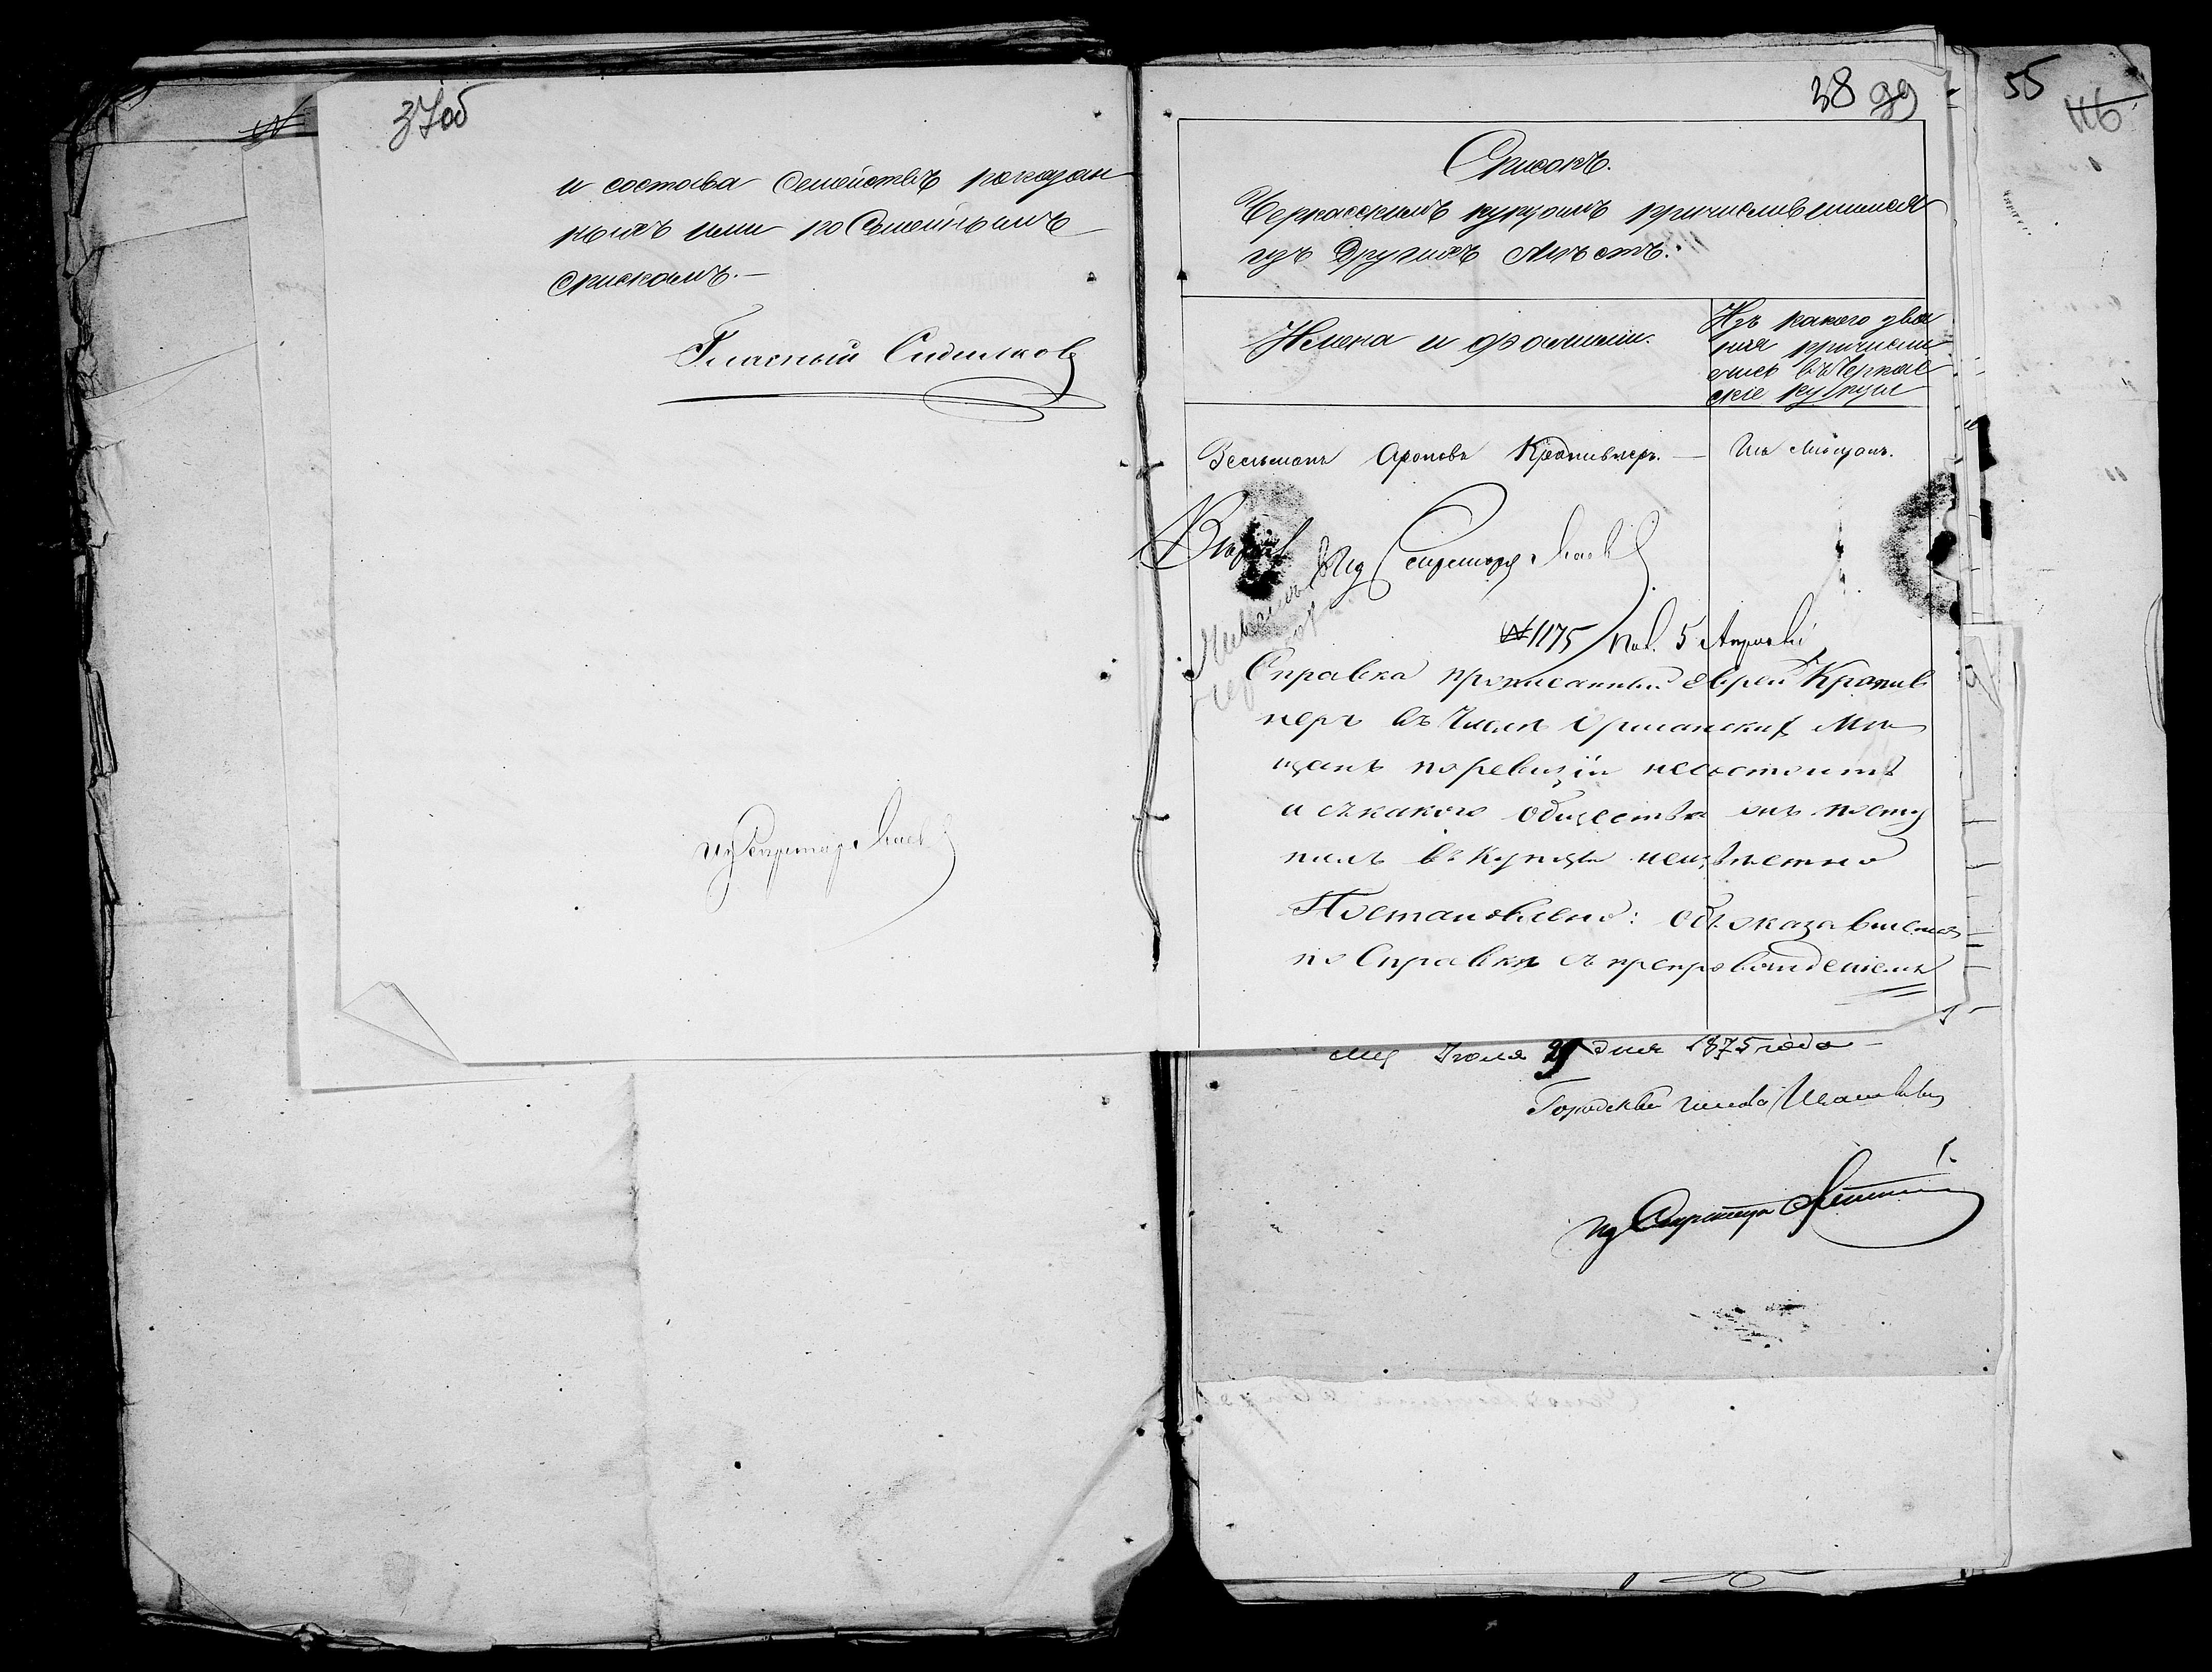 37об
и состава Семействъ показан
ныхъ ими по Семейнымъ
спискамъ.—
Гласный
ИД Секретаря
38 99
Списокъ.
Черкасскимъ купцамъ причислившимся
изъ другихъ мѣстъ.
Имена и фамиліи.
Изъ какого зва
нія причисли
лись въ Черкас
скіе купцы
Зельманъ Ароновъ Крапивнеръ. —
Изъ Мѣщанъ.
ИД Секретаря
№ 1175 / Пол. 5 Апрѣля
Справка прописанный еврей Крапив
неръ въ числѣ мѣ
щанъ по ревизіи несостоитъ
и съ какого общества онъ посту
пилъ въ купцы неизвѣстно
Постановлено: объ оказавшемся
по Справкѣ съ препровожденіемъ
Іюля 29 дня 1875 года —
Городской голова
ИД Секретаря
55
116